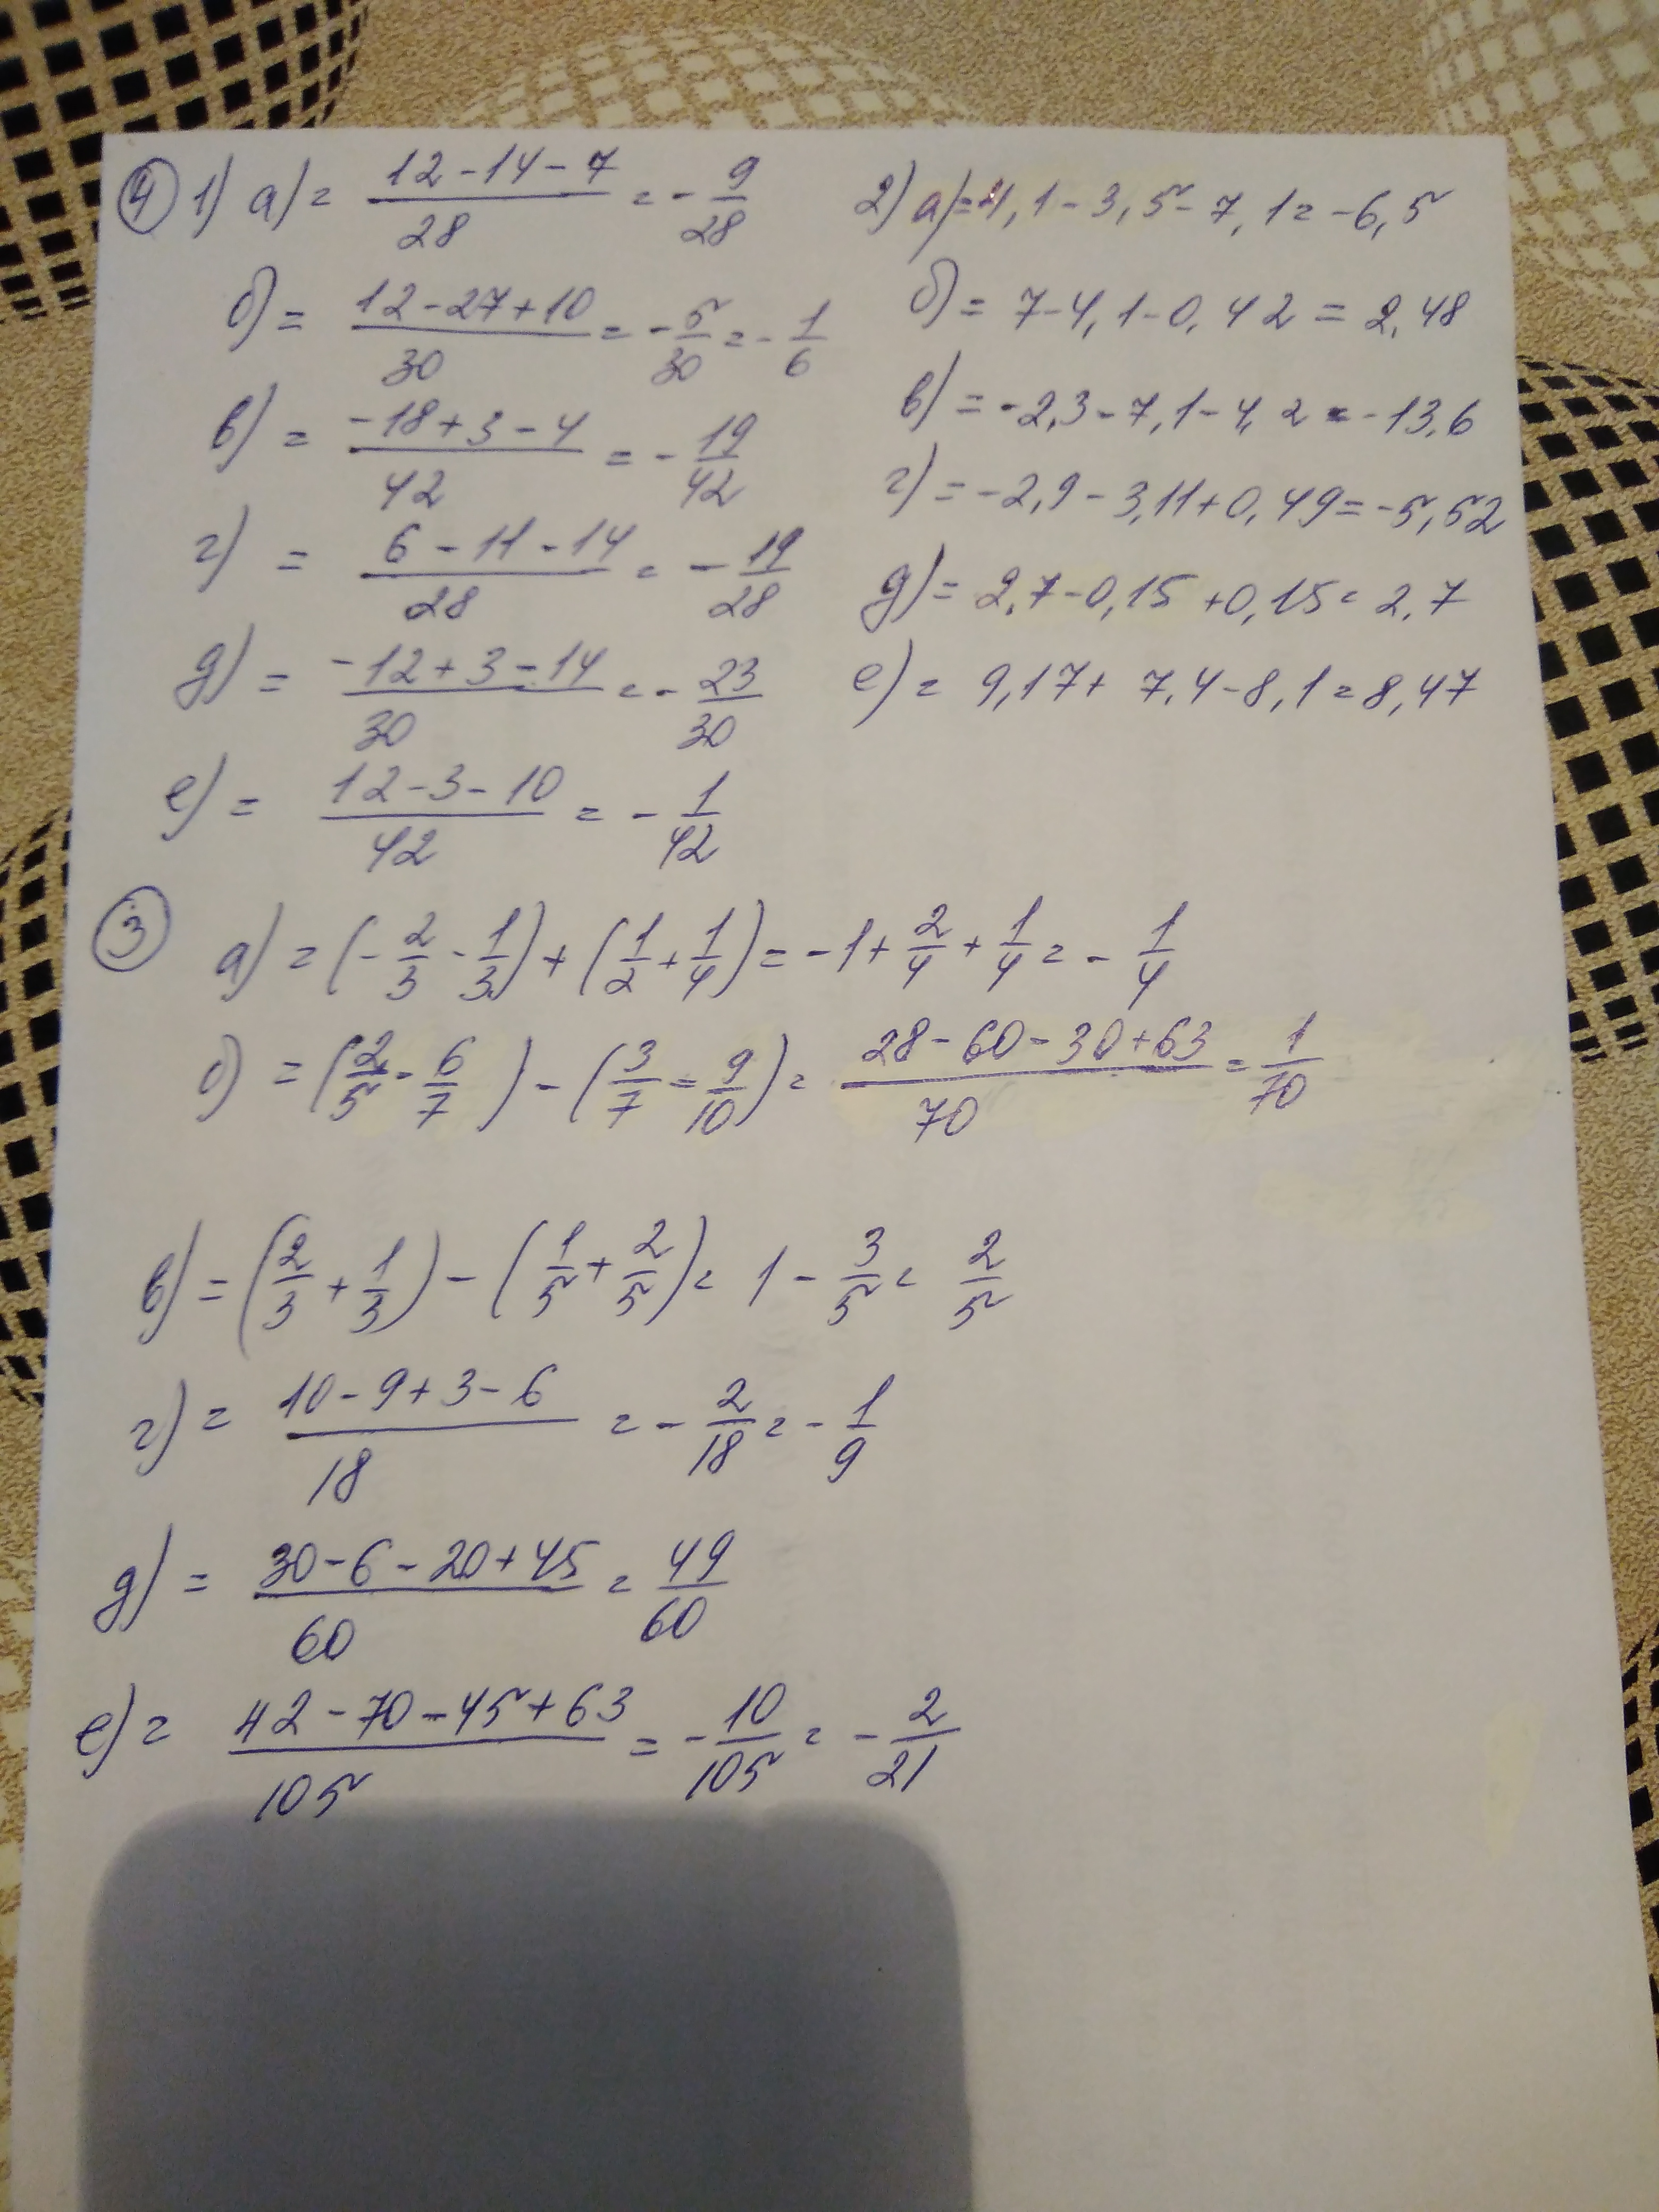 ④ 1) а) = (12-14-7)/28 = -9/28
б) = (12-27+10)/30 = -5/30 = -1/6
в) = (-18+3-4)/42 = -19/42
г) = (6-11-14)/28 = -19/28
д) = (-12+3-14)/30 = -23/30
е) = (12-3-10)/42 = -1/42
2) а) = 4,1-3,5-7,1 = -6,5
б) = 7-4,1-0,42 = 2,48
в) = -2,3-7,1-4,2 = -13,6
г) = -2,9-3,11+0,49 = -5,52
д) = 2,7-0,15+0,15 = 2,7
е) = 9,17+7,4-8,1 = 8,47
③ а) = (-2/3-1/3)+(1/2+1/4) = -1+2/4+1/4 = -1/4
б) = (2/5-6/7)-(3/7=9/10) = (28-60-30+63)/70 = 1/70
в) = (2/3+1/3)-(1/5+2/5) = 1-3/5 = 2/5
г) = (10-9+3-6)/18 = -2/18 = -1/9
д) = (30-6-20+45)/60 = 49/60
е) = (42-70-45+63)/105 = -10/105 = -2/21